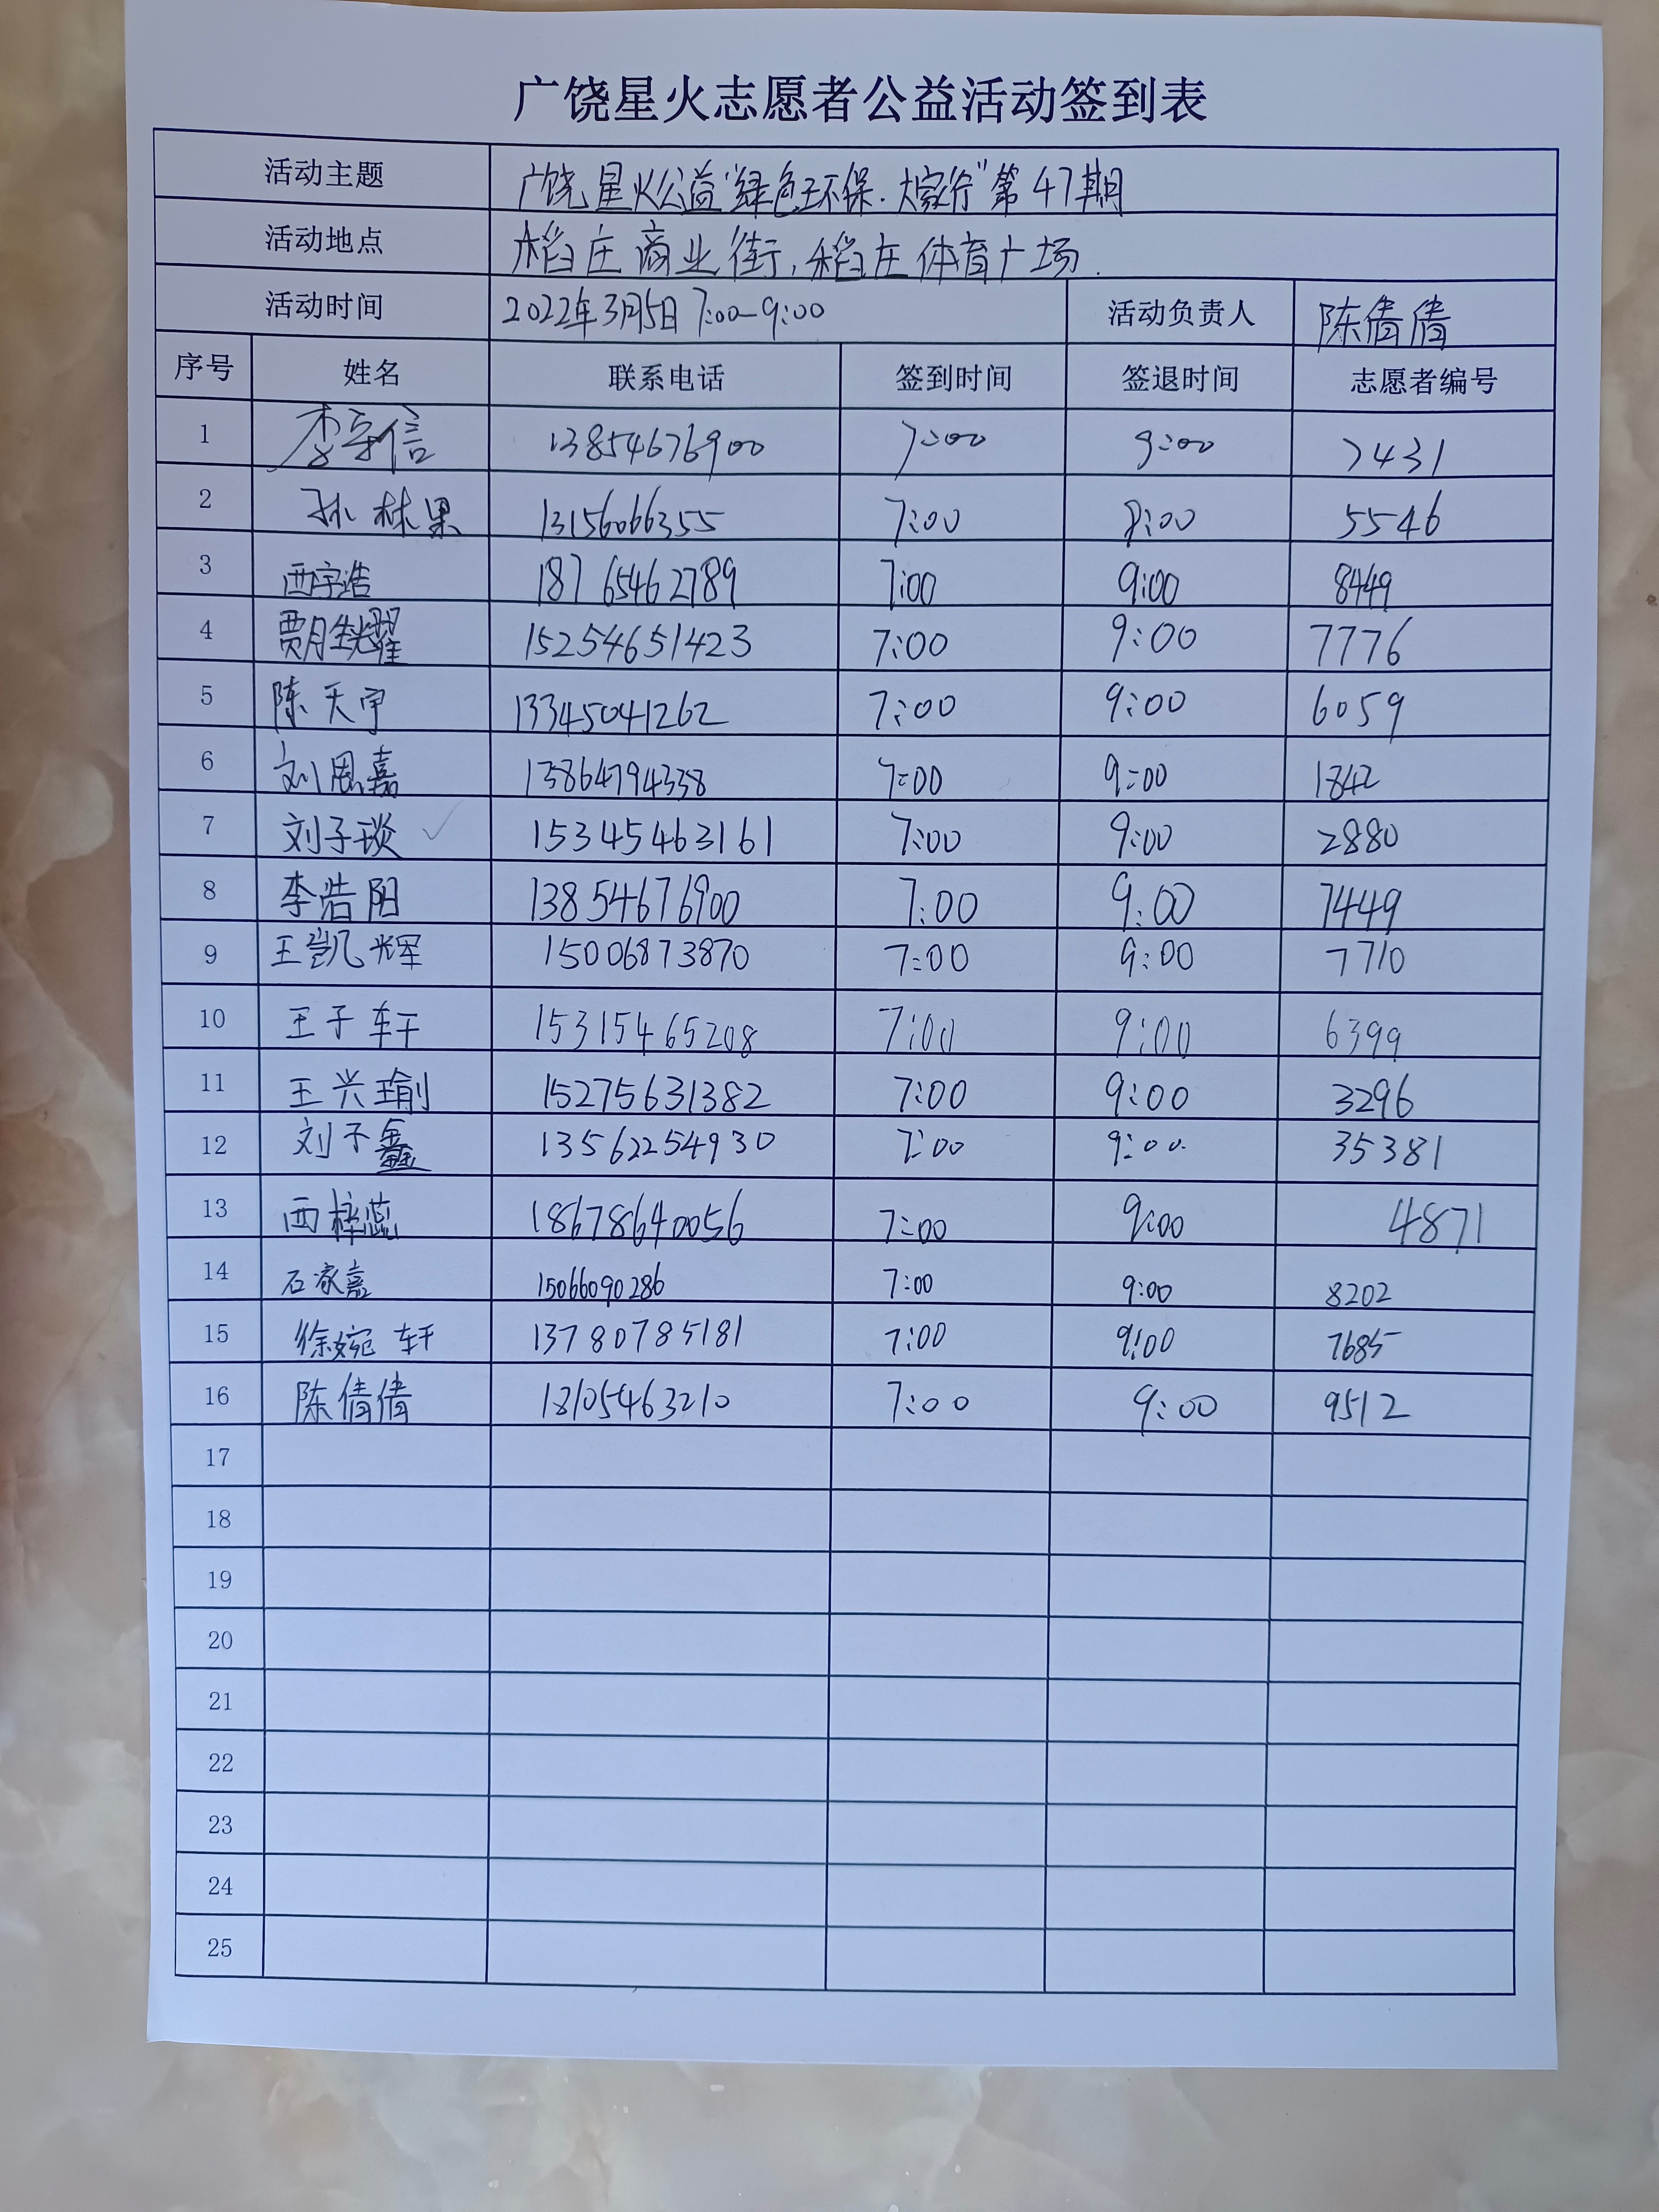 广饶星火志愿者公益活动签到表
活动主题 广饶星火公益“绿色环保·大家行”第47期
活动地点 稻庄商业街,稻庄体育广场.
活动时间 2022年3月5日 7:00-9:00 活动负责人 陈倩倩
序号 姓名 联系电话 签到时间 签退时间 志愿者编号
1 李守信 13854676900 7:00 9:00 7431
2 孙林果 13156066355 7:00 9:00 5546
3 西宇浩 18765462789 7:00 9:00 8449
4 贾耀 15254651423 7:00 9:00 7776
5 陈天宇 13345041262 7:00 9:00 6059
6 刘恩嘉 13864794338 7:00 9:00 1842
7 刘子琰 ✓ 15345463161 7:00 9:00 2880
8 李浩阳 13854676900 7:00 9:00 7449
9 王凯辉 15006873870 7:00 9:00 7710
10 王子轩 15315465208 7:00 9:00 6399
11 王兴瑜 15275631382 7:00 9:00 3296
12 刘子鑫 13562254930 7:00 9:00 35381
13 西梓蕊 18678640056 7:00 9:00 4871
14 石家嘉 15066090286 7:00 9:00 8202
15 徐婉轩 13780785181 7:00 9:00 7685
16 陈倩倩 18105463210 7:00 9:00 9512
17
18
19
20
21
22
23
24
25